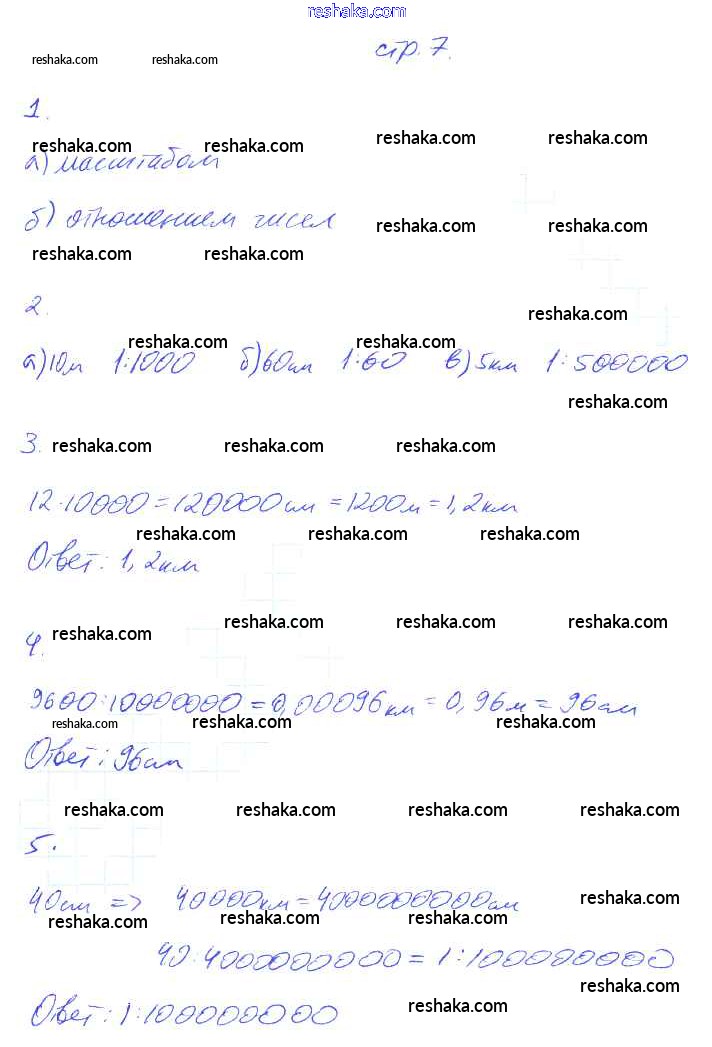 reshaka.com
стр. 7.
reshaka.com reshaka.com
1.
reshaka.com reshaka.com reshaka.com reshaka.com
а) масштабом
б) отношением чисел reshaka.com reshaka.com
reshaka.com reshaka.com
2. reshaka.com
reshaka.com reshaka.com
а) 10м 1:1000 б) 60см 1:60 в) 5км 1:500000
reshaka.com
3. reshaka.com reshaka.com reshaka.com
12·10000=120000см=1200м=1,2км
reshaka.com reshaka.com reshaka.com
Ответ: 1,2км
reshaka.com reshaka.com reshaka.com
4. reshaka.com
9600:10000000=0,00096км=0,96м=96см
reshaka.com reshaka.com reshaka.com reshaka.com
Ответ: 96см
reshaka.com reshaka.com reshaka.com reshaka.com
5.
40см => 40000км=4000000000см reshaka.com
reshaka.com reshaka.com reshaka.com
40:4000000000=1:100000000
reshaka.com
Ответ: 1:100000000 reshaka.com